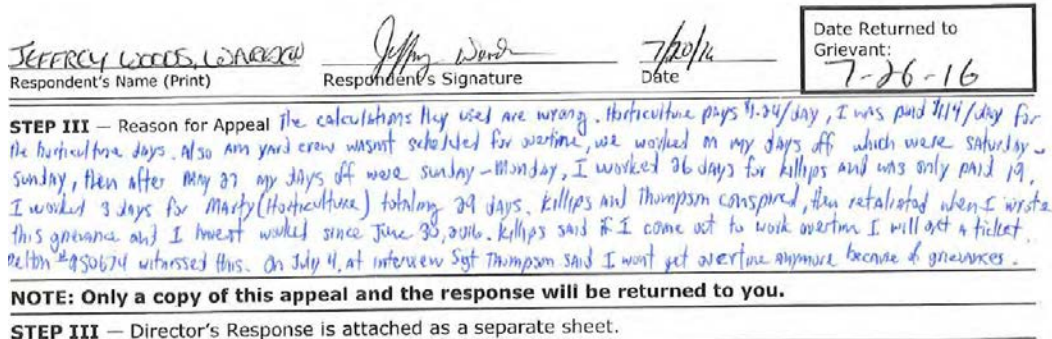 JEFFREY WOODS, WARDEN
Jeffrey Woods
7/20/16
Date Returned to
Grievant:
7-26-16
Respondent's Name (Print) Respondent's Signature Date
STEP III — Reason for Appeal The calculations they used are wrong. Horticulture pays $1.24/day, I was paid $1.14/day for
the horticulture days. Also Am yard crew wasnt scheduled for overtime, we worked on my days off which were saturday -
sunday, then after May 27 my days off were sunday-monday, I worked 26 days for killips and was only paid 19.
I worked 3 days for Marty (Horticulture) totaling 29 days. killips and Thompson conspired, then retaliated when I wrote
this grievance and I havent worked since June 30, 2016. killips said if I come out to work overtim I will get a ticket.
pelton #950674 witnessed this. On July 4, at interview Sgt Thompson said I wont get overtime anymore because of grievances.
NOTE: Only a copy of this appeal and the response will be returned to you.
STEP III — Director's Response is attached as a separate sheet.